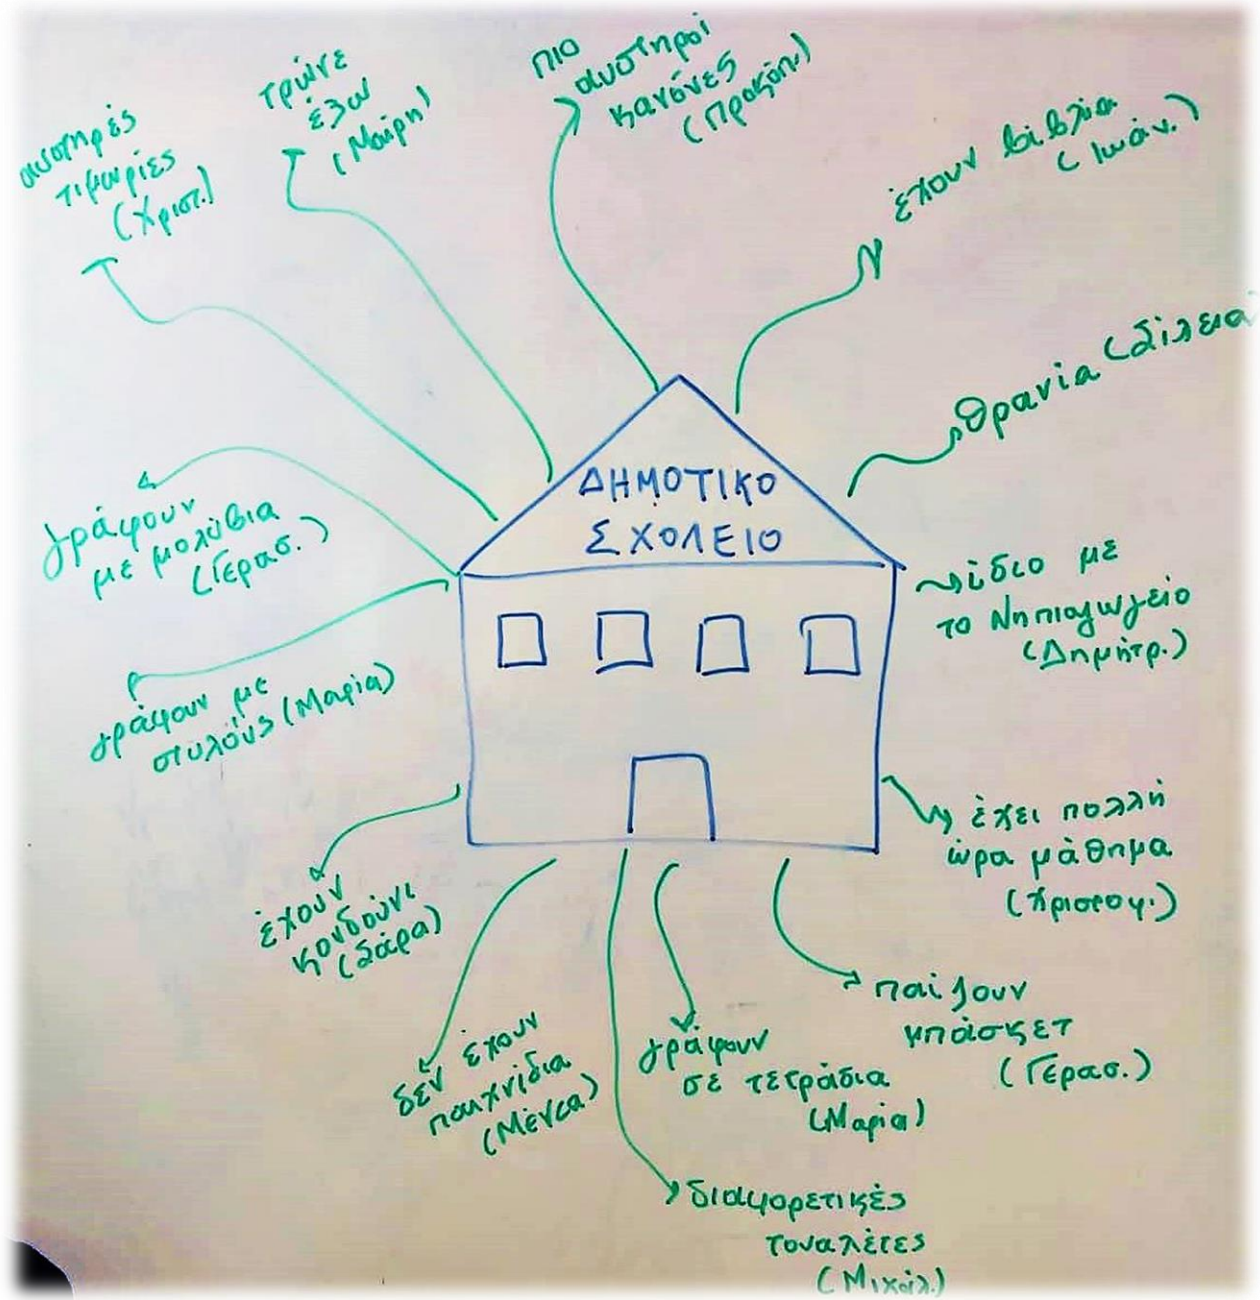 ΔΗΜΟΤΙΚΟ
ΣΧΟΛΕΙΟ
αυστηρές
τιμωρίες
(Χριστ.)
τρώνε
έξω
(Μαίρη)
πιο
αυστηροί
κανόνες
(Προκόπ.)
έχουν βιβλία
(Ιωάν.)
θρανία (Σίλεια
ίδιο με
το Νηπιαγωγείο
(Δημήτρ.)
έχει πολλή
ώρα μάθημα
(Χρισοφ.)
παίζουν
μπάσκετ
(Γερασ.)
γράφουν
σε τετράδια
(Μαρία)
διαφορετικές
τουαλέτες
(Μιχάλ.)
δεν έχουν
παιχνίδια
(Μένια)
έχουν
κουδούνι
(Σάρα)
γράφουν με
στυλούς (Μαρία)
γράφουν
με μολύβια
(Γερασ.)